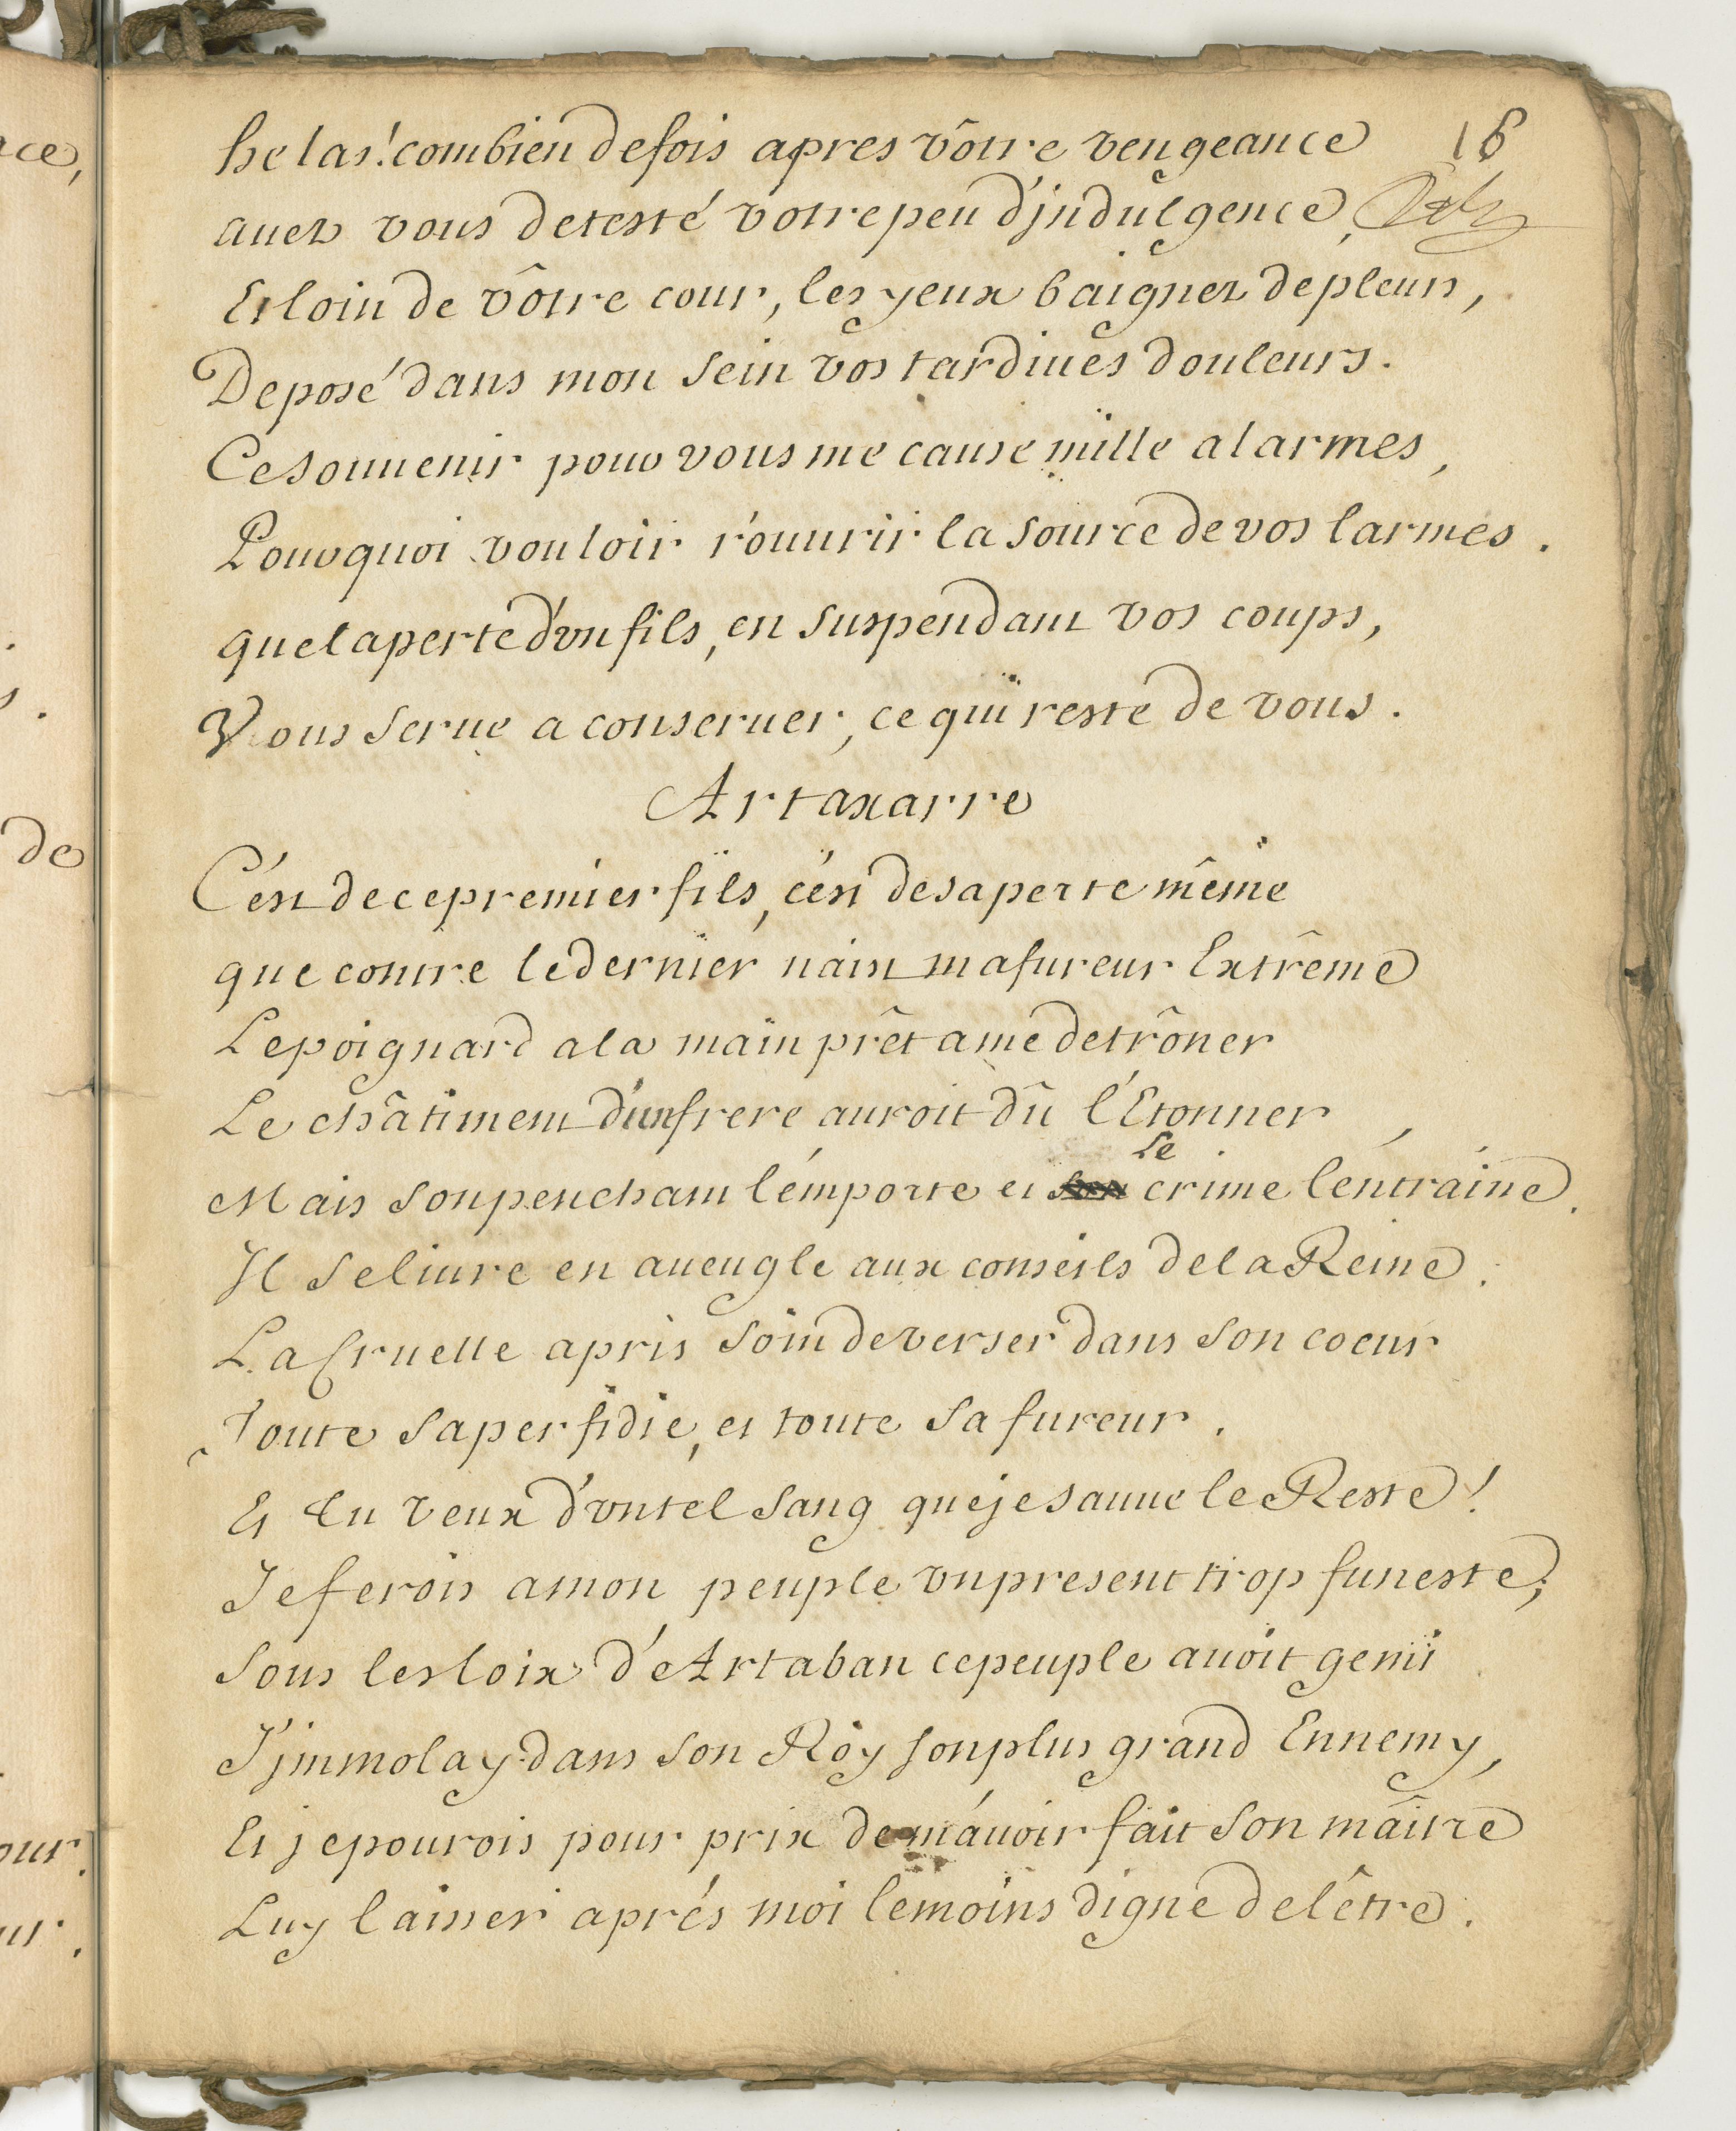 18
helas! combien de fois apres vôtre vengeance
auez vous detesté votre peu d'jndulgence,
Et loin de vôtre cour, les yeux baignez de pleurs,
Deposé dans mon sein vos tardiues douleurs.
Ce souuenir pour vous me cause mille alarmes,
Pourquoi vouloir r'ouurir la source de vos larmes.
que la perte d'vn fils, en suspendant vos coups,
Vous serue a conseruer, ce qui reste de vous.
Artaxarre
C'est de ce premier fils, c'est de sa perte même
que contre le dernier nait ma fureur Extrême
Le poignard a la main prêt a me detrôner
Le châtiment d'un frere auroit dû l'Etonner,
Mais son penchant l'emporte et le crime l'entraine.
Il se liure en aueugle aux conseils de la Reine.
La Cruelle a pris soin de verser dans son coeur
Toute sa perfidie, et toute sa fureur.
Et tu veux d'vn tel sang que je sauue le Reste!
Je ferois a mon peuple vn present trop funeste;
Sous les loix d'Artaban ce peuple auoit gemi
J'jmmolay dans son Roy son plus grand Ennemy,
Et je pourois pour prix de m'auoir fait son maître
Luy laisser aprés moi le moins digne de l'être.